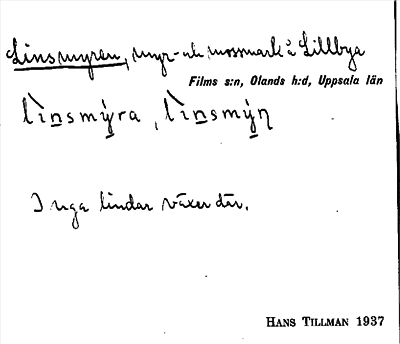 Linsmyren, myr- och mossmark å Lillbya
Films s:n, Olands h:d, Uppsala län
lìnsmýra, lìnsmýn
Inga lindar växer där.
HANS TILLMAN 1937